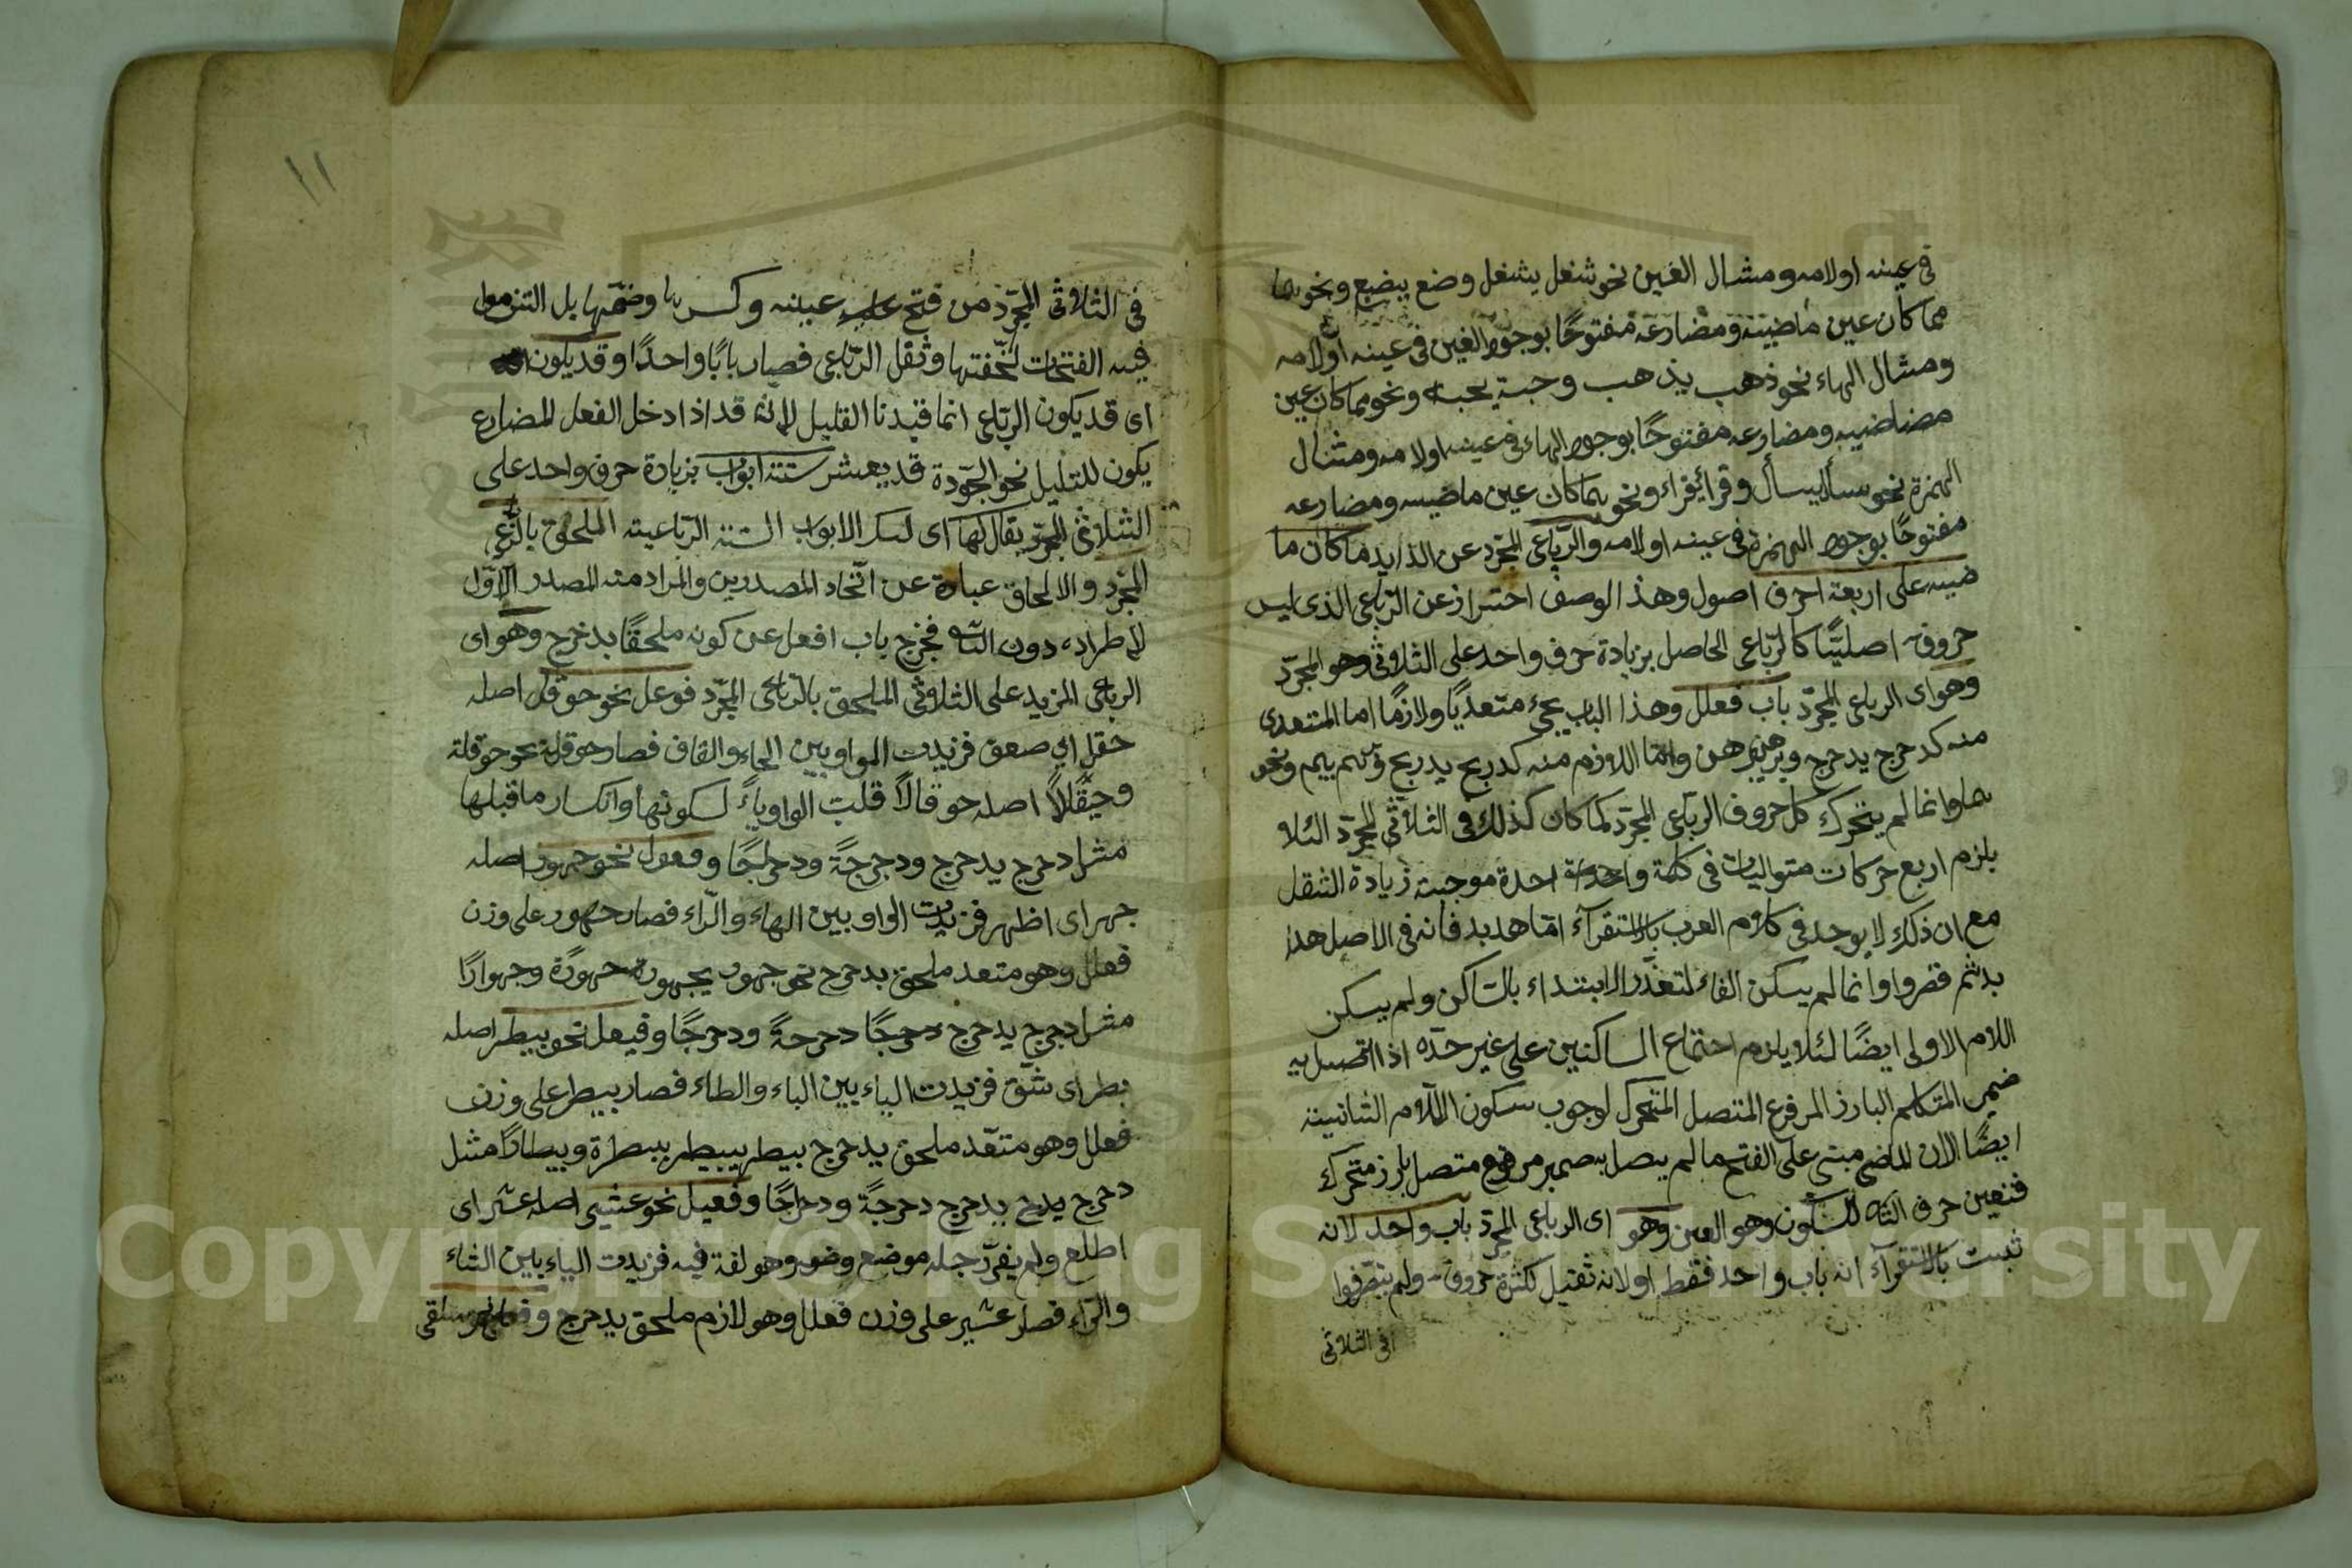 فى عينه اولامه ومثال الغين نحو شغل يشغل وضع يضع ونحوهما
مما كان عين ماضيه ومضارعه مفتوحًا بوجود الغين فى عينه اولامه
ومثال الهاء نحو ذهب يذهب وجبه يجبه ونحو مما كان عين
مضاضيه ومضارعه مفتوحًا بوجود الهاء فى عينه اولامه ومثال
الهمزة نحو سأل يسأل وقرأ يقراء ونحوهما كان عين ماضيه ومضارعه
مفتوحًا بوجود الهمزة فى عينه اولامه والرّباعى المجرّد عن الذايد ما كان ما
ضيه على اربعة احرف اصول وهذ الوصف احتراز عن الرّباعى الذى ليس
حروفه اصليّتًا كالرّباعى الحاصل بزيادة حرف واحد على الثلاثى وهو المجرّد
وهو اى الرباعى المجرّد باب فعلل وهذا الباب يجئ متعديًا ولازمًا اما المتعدى
منه كدحرج يدحرج وبرهن يبرهن وامّا اللازم منه كدربح يدربح ونحو
هما وانما لم يتحرك كل حروف الرّباعى المجرّد كما كان كذلك فى الثلاثى المجرّد لئلا
يلزم اربع حركات متواليات فى كلمة واحدة موجبة زيادة الثقل
مع ان ذلك لا يوجد فى كلام العرب بالاستقرآء امّا هدبد فانه فى الاصل هدا
بد ثم قصروا وانما لم يسكن الفاء لتعذّر الابتداء بالسّاكن ولم يسكن
اللام الاولى ايضًا لئلا يلزم اجتماع الساكنين على غير حدّه اذا اتّصل به
ضمير المتكلم البارز المرفوع المتصل المتحرك لوجوب سكون اللّام الثانيية
ايضًا لان الماضى مبنى على الفتح ما لم يتصل به ضمير مرفوع متصل بارز متحرك
فتعين حرف الثانى للسّكون وهو العين وهو اى الرباعى المجرّد باب واحد لانه
ثبت بالاستقرآء انه باب واحد فقط اولانه ثقيل لكثرة حروفه ولم يتصرّفوا
فى الثلاثى
١١
فى الثلاثى المجرّد من فتح عينه وكسرها وضمّها بل التزموا
فيه الفتحات لخفّتها وثقل الرّباعى فصار بابًا واحدًا وقد يكون
اى قد يكون الرباعى انما قيّدنا القليل لانه قد اذا دخل الفعل المضارع
يكون للتقليل نحو الجوّدة قد يعثر ستة ابواب بزيادة حرف واحد على
الثلاثى المجرّد يقال لها اى لتلك الابواب الستة الرّباعية الملحق بالرّباعى
المجرّد والالحاق عبارة عن اتّحاد المصدرين والمراد منه المصدر الاوّل
لاطراده دون الثانى فخرج باب افعل عن كونه ملحقًا بدحرج وهو اى
الرباعى المزيد على الثلاثى الملحق بالرّباعى المجرّد فوعل نحو حوقل اصله
حقل اى صعق فزيدت الواو بين الحاء والقاف فصار حوقل نحو حوقلة
وحيقالًا اصله حوقالًا قلبت الواو ياءً لسكونها وانكسار ما قبلها
مثل دحرج يدحرج ودحرجةً ودحراجًا وفعول نحو جهور اصله
جهر اى اظهر فزيدت الواو بين الهاء والرّاء فصار جهور على وزن
فعلل وهو متعد ملحق بدحرج نحو جهور يجهور جهورًة وجهوارًا
مثل دحرج يدحرج دحرجةً ودحرجًا وفيعل نحو بيطر اصله
بطر اى شقّ فزيدت الياء بين الباء والطاء فصار بيطر على وزن
فعلل وهو متعّد ملحق يدحرج بيطر يبيطر بيطرة وبيطارًا مثل
دحرج يدحرج دحرجًة ودحراجًا وفعيل نحو عثير اصله عثر اى
اطلع وهو لغة فيه فزيدت الياء بين الثاء
والرّاء فصار عثير على وزن فعلل وهو لازم ملحق يدحرج سلقى
Copyright © King Saud University